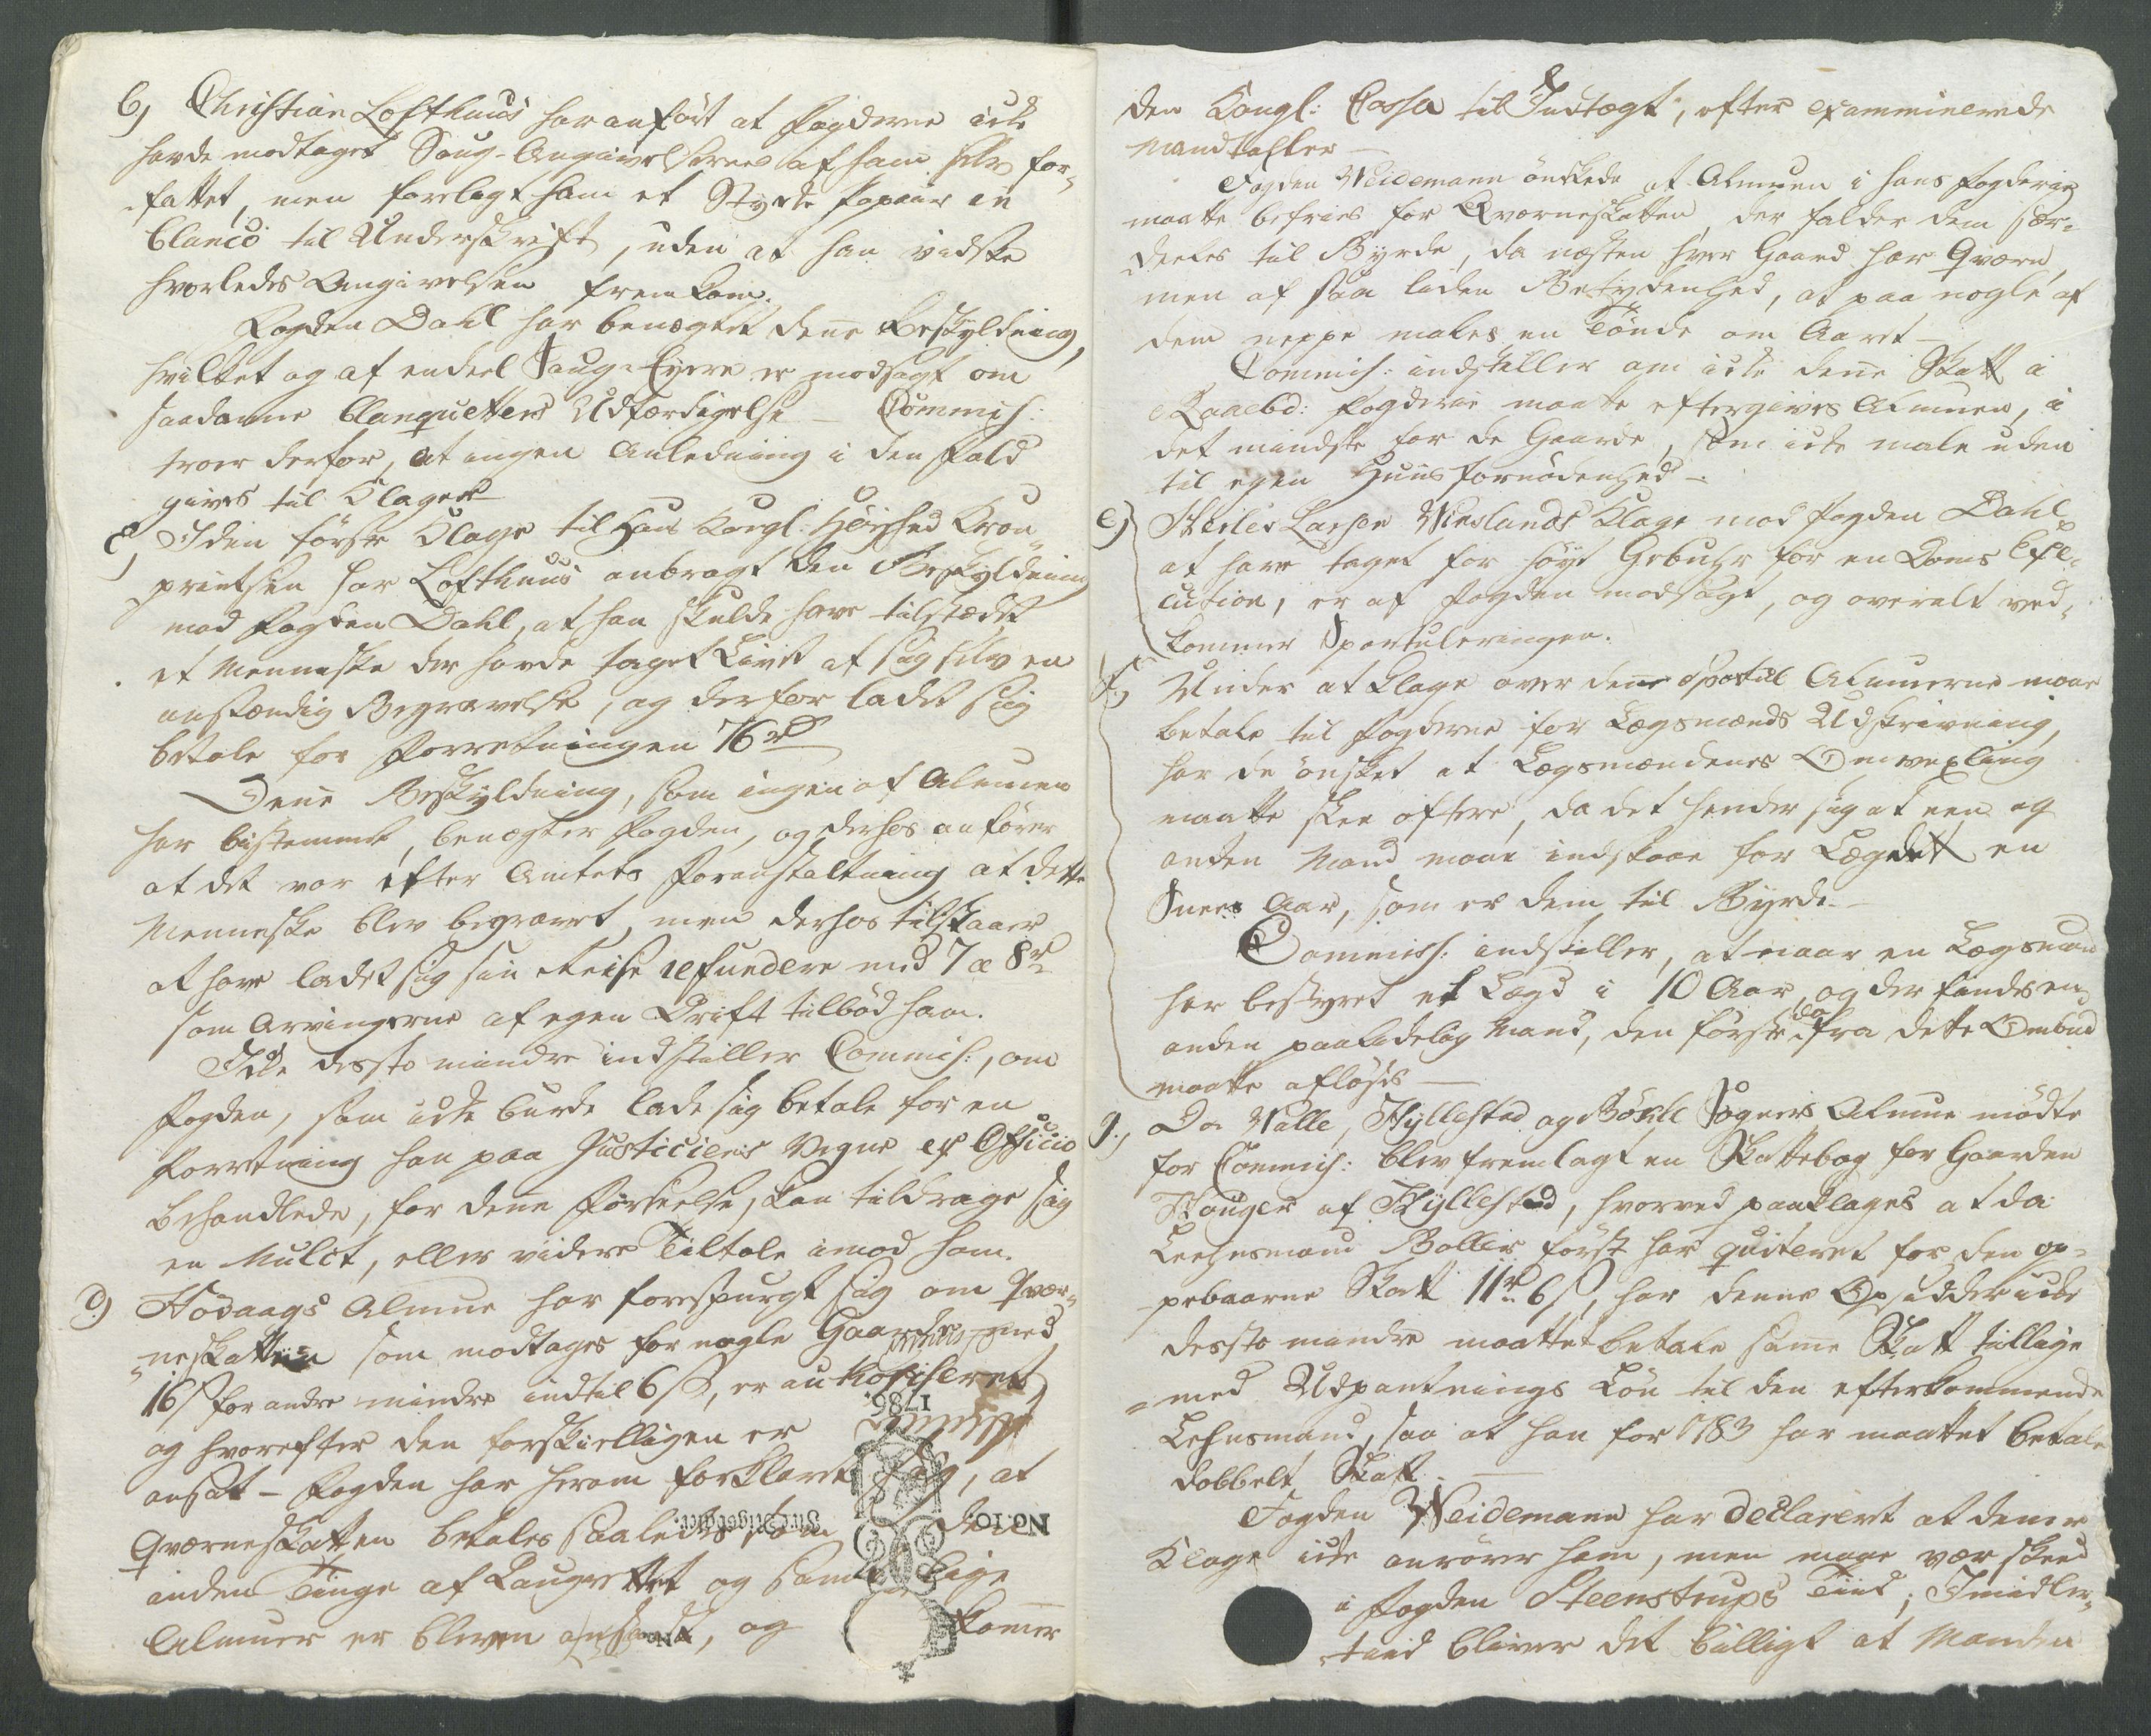 b) Christian Lofthuus har anført at Fogderne icke
havde modtaget Saug-Angivelserne af ham selv for-
fattet, men forelagt ham et Stykke Papiir in
blanco til Underskrift, uden at han vidste
hvorledes Angivelsen fremkom.
Fogden Dahl har benægtet denne Beskyldning,
hvilket og af endeel Saug-Eyere er modsagt om
saadanne blanquetters Udfærdigelse – Commis:
troer derfor, at ingen Anledning i den Fald
gives til Klager
c) I den første Klage til Hans Kongl: Høyhed Kron-
printsen har Lofthuus anbragt den Beskyldning
mod Fogden Dahl, at han skulde have tilstædet
et Menneske der havde taget Livet af sig selv en
anstændig Begravelse, og derfor ladet sig
betale for Forretningen 76 rd
Denne Beskyldning, som ingen af Almuen
har bistemmet, benægter Fogden, og derhos anfører
at det var efter Amtets Foranstaltning at dette
Menneske blev begravet, men derhos tilstaaer
at have ladet sig sin Reise refundere med 7 a 8 rd
som Arvingerne af egen Drift tilbød ham.
Icke desto mindre indstiller Commis:, om
Fogden, som icke burde lade sig betale for en
Forretning han paa Justiciens Vegne ex Officio
behandlede, for denne Forseelse, kan tildrage sig
en Mulct, eller videre Tiltale imod ham.
d) Hødaags Almue har forespurgt sig om Qvær-
neskatten som modtages for nogle Gaarde med
16 s for andre mindre indtil 6 s, er authoriseret
og hvorefter den forskielligen er
ansat – Fogden har herom forklaret sig, at
Qværneskatten betales saaledes som den
anden Tinge af Laugrettet og samtlige
Almuer er bleven ansat, og kommer
1786.
No. 10.
Fire Rigsdaler.
den Kongl: Cassa til Indtægt, efter examinerede
Mandtaller –
Fogden Weidemann ønskede at Almuen i hans Fogderie
maatte befries for Qværneskatten, der falder dem sær-
deeles til Byrde, da næsten hver Gaard har Qværn,
men af saa liden Betydenhed, at paa nogle af
dem neppe males en Tønde om Aaret –
Commis: indstiller om icke denne Skatt i
Raaebd: Fogderie maatte eftergives Almuen, i
det mindste for de Gaarde, som icke male uden
til egen Huus fornødenhed –.
e) Larsen Klage mod Fogden Dahl
at have taget for høyt Gebuhr for en Doms Exe-
cution, er af Fogden modsagt, og overalt ved-
kommer Sportuleringen.
f.) Under at klage over denne Sportul Almuerne maae
betale til Fogderne for Lægsmænds Udskrivning,
har de ønsket at Lægsmændenes Omvexling
maatte skee oftere, da det hender sig at een og
anden Mand maae indstaae for Lægdet en
Snees Aar, som er dem til Byrde –
Commiss: indstiller, at naar en Lægsmand
har bestyret et Lægd i 10 Aar, og der fandtes en
anden paalidelig Mand, den første da fra dette Ombud
maatte afløses –
g.) Da Walle, Hyllestad og Bøckle Sognes Almue mødte
for Commis: blev fremlagt en Skattebog for Gaarden
af Hyllestad, hvorved paaklages at da
Leehnsmand først har quiteret for den op-
pebaarne Skatt 11 rd 6 s, har denne Opsidder icke
desto mindre maattet betale samme Skatt tillige
med Udpantnings Løn til den efterkommende
Lehnsmand, saa at han for 1783 har maattet betale
dobbelt Skatt. –
Fogden Weidemann har declareret at denne
Klage icke anrører ham, men maae være skeed
i Fogden Steenstrups Tiid; Imidler-
tiid bliver det billigt at Manden